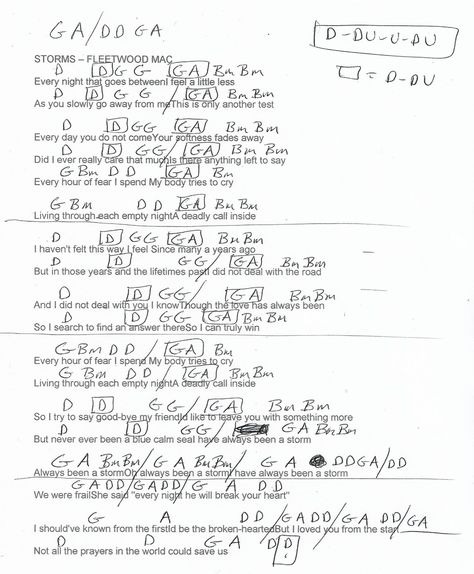 G A / D D G A
D - DU - U - DU
□ = D - DU
STORMS – FLEETWOOD MAC
D [D] G G [G A] Bm Bm
Every night that goes betweenI feel a little less
D [D] G G / [G A] Bm Bm
As you slowly go away from meThis is only another test
D [D] G G [G A] Bm Bm
Every day you do not comeYour softness fades away
D [D] G G / [G A] Bm Bm
Did I ever really care that muchIs there anything left to say
G Bm D D [G A] Bm
Every hour of fear I spend My body tries to cry
G Bm D D [G A] Bm
Living through each empty nightA deadly call inside
D [D] G G [G A] Bm Bm
I haven't felt this way I feel Since many a years ago
D [D] G G / [G A] Bm Bm
But in those years and the lifetimes pastI did not deal with the road
D [D] G G / [G A] Bm Bm
And I did not deal with you I knowThough the love has always been
D [D] G G [G A] Bm Bm
So I search to find an answer thereSo I can truly win
G Bm D D / [G A] Bm
Every hour of fear I spend My body tries to cry
G Bm D D / [G A] Bm
Living through each empty nightA deadly call inside
D [D] G G / [G A] Bm Bm
So I try to say good-bye my friendId like to leave you with something more
D [D] G G / G A Bm Bm
But never ever been a blue calm seaI have always been a storm
G A Bm Bm / G A Bm Bm / G A D D G A / D D
Always been a stormOh always been a stormI have always been a storm
G A D D / G A D D / G A D D
We were frailShe said "every night he will break your heart"
G A D D / G A D D / G A D D / G A
I should've known from the firstId be the broken-heartedBut I loved you from the start
D D G A D [D]
Not all the prayers in the world could save us